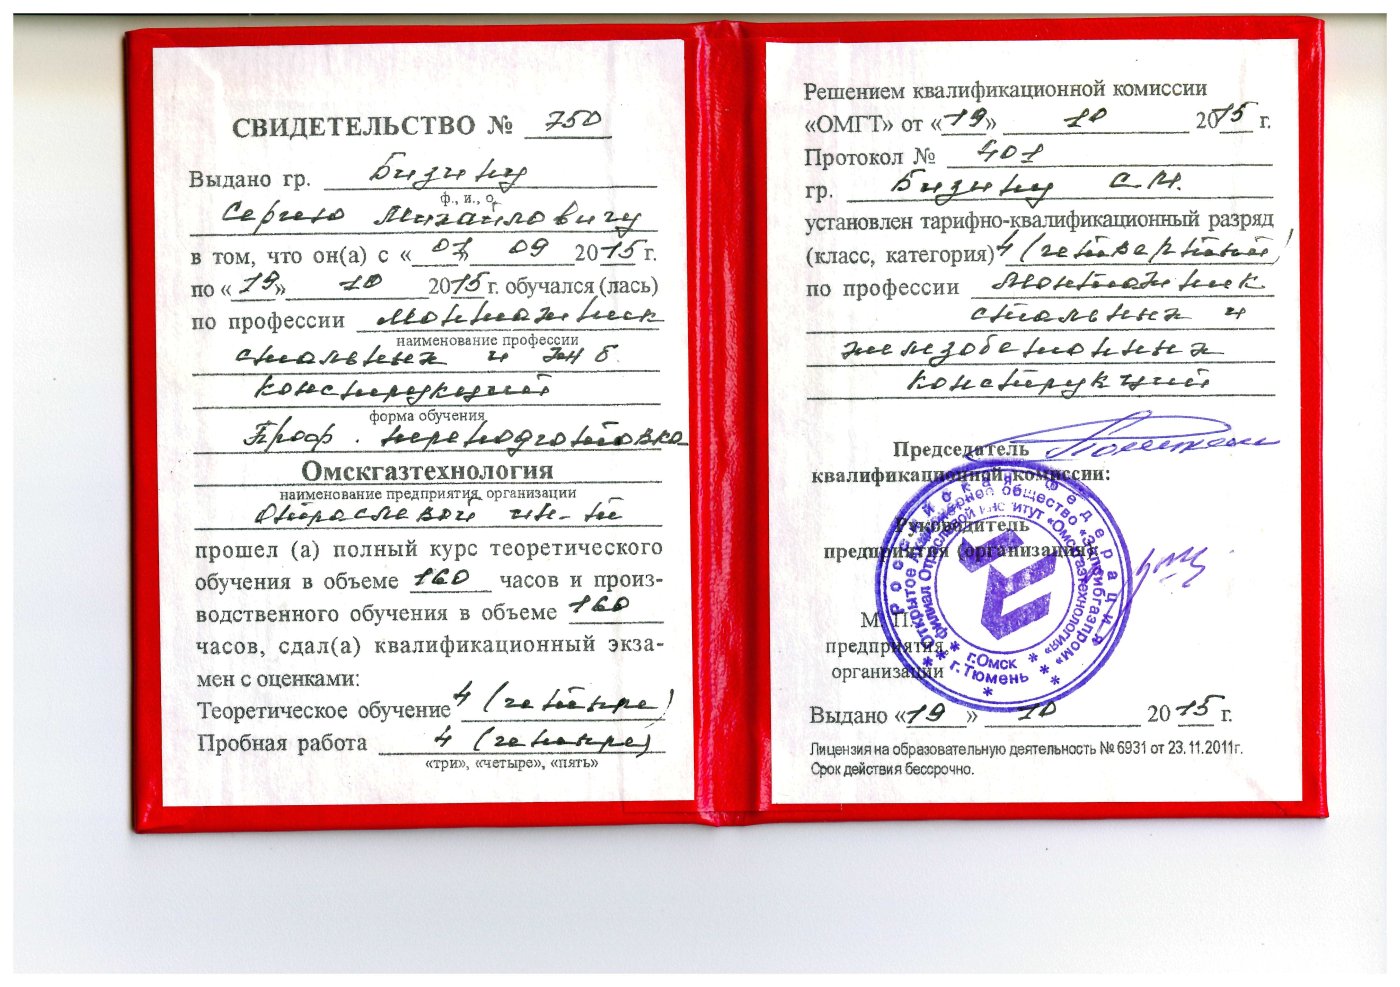 СВИДЕТЕЛЬСТВО № 750
Выдано гр. Бизину
ф., и., о.
Сергею Михайловичу
в том, что он(а) с «07» 09 2015 г.
по «19» 10 2015 г. обучался (лась)
по профессии Монтажник
наименование профессии
стальных и жб
конструкций
форма обучения
Проф. переподготовка
Омскгазтехнология
наименование предприятия, организации
Отраслевой ин-т
прошел (а) полный курс теоретического
обучения в объеме 160 часов и произ-
водственного обучения в объеме 160
часов, сдал(а) квалификационный экза-
мен с оценками:
Теоретическое обучение 4 (четыре)
Пробная работа 4 (четыре)
«три», «четыре», «пять»
Решением квалификационной комиссии
«ОМГТ» от «19» 10 2015 г.
Протокол № 401
гр. Бизину С.М.
установлен тарифно-квалификационный разряд
(класс, категория) 4 (четвертый)
по профессии Монтажник
стальных и
железобетонных
конструкций
Председатель
квалификационной комиссии:
Руководитель
предприятия (организации)
М. П.
предприятия,
организации
Российская Федерация
Открытое акционерное общество «Запсибгазпром»
филиал Отраслевой институт «Омскгазтехнология»
г.Омск
г.Тюмень
Выдано «19» 10 2015 г.
Лицензия на образовательную деятельность № 6931 от 23.11.2011г.
Срок действия бессрочно.